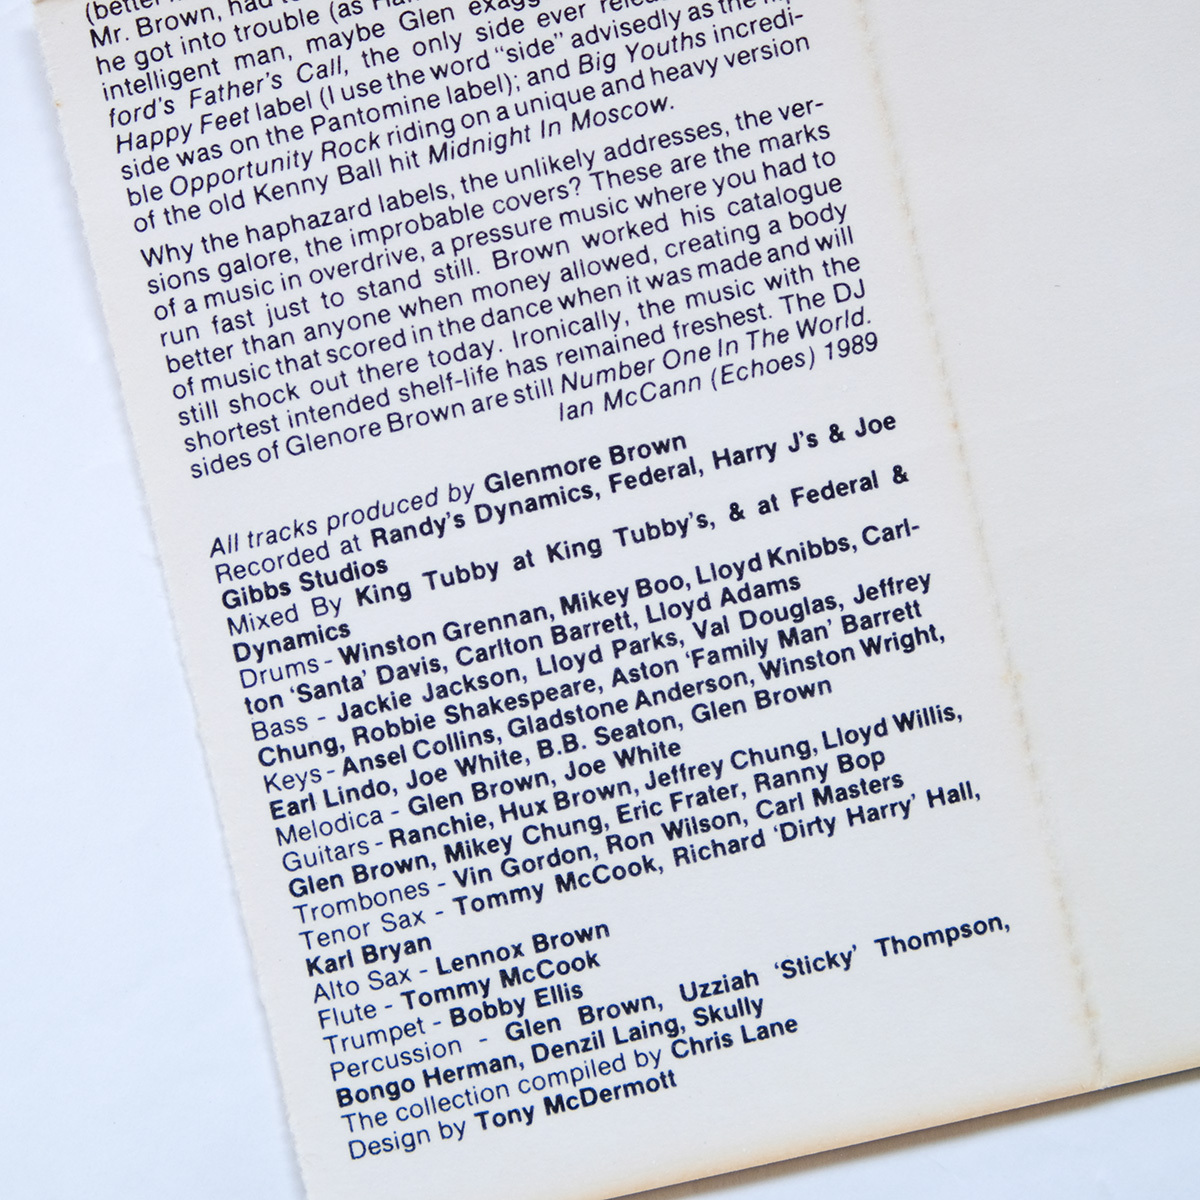 (better
Mr. Brown, had
he got into trouble (as
intelligent man, maybe Glen
ford's Father's Call, the only side ever
Happy Feet label (I use the word "side" advisedly as the
side was on the Pantomine label); and Big Youths incredi-
ble Opportunity Rock riding on a unique and heavy version
of the old Kenny Ball hit Midnight In Moscow.
Why the haphazard labels, the unlikely addresses, the ver-
sions galore, the improbable covers? These are the marks
of a music in overdrive, a pressure music where you had to
run fast just to stand still. Brown worked his catalogue
better than anyone when money allowed, creating a body
of music that scored in the dance when it was made and will
still shock out there today. Ironically, the music with the
shortest intended shelf-life has remained freshest. The DJ
sides of Glenore Brown are still Number One In The World.
Ian McCann (Echoes) 1989
All tracks produced by Glenmore Brown
Recorded at Randy's Dynamics, Federal, Harry J's & Joe
Gibbs Studios
Mixed By King Tubby at King Tubby's, & at Federal &
Dynamics
Drums - Winston Grennan, Mikey Boo, Lloyd Knibbs, Carl-
ton 'Santa' Davis, Carlton Barrett, Lloyd Adams
Bass - Jackie Jackson, Lloyd Parks, Val Douglas, Jeffrey
Chung, Robbie Shakespeare, Aston 'Family Man' Barrett
Keys - Ansel Collins, Gladstone Anderson, Winston Wright,
Earl Lindo, Joe White, B.B. Seaton, Glen Brown
Melodica - Glen Brown, Joe White
Guitars - Ranchie, Hux Brown, Jeffrey Chung, Lloyd Willis,
Glen Brown, Mikey Chung, Eric Frater, Ranny Bop
Trombones - Vin Gordon, Ron Wilson, Carl Masters
Tenor Sax - Tommy McCook, Richard 'Dirty Harry' Hall,
Karl Bryan
Alto Sax - Lennox Brown
Flute - Tommy McCook
Trumpet - Bobby Ellis
Percussion - Glen Brown, Uzziah 'Sticky' Thompson,
Bongo Herman, Denzil Laing, Skully
The collection compiled by Chris Lane
Design by Tony McDermott